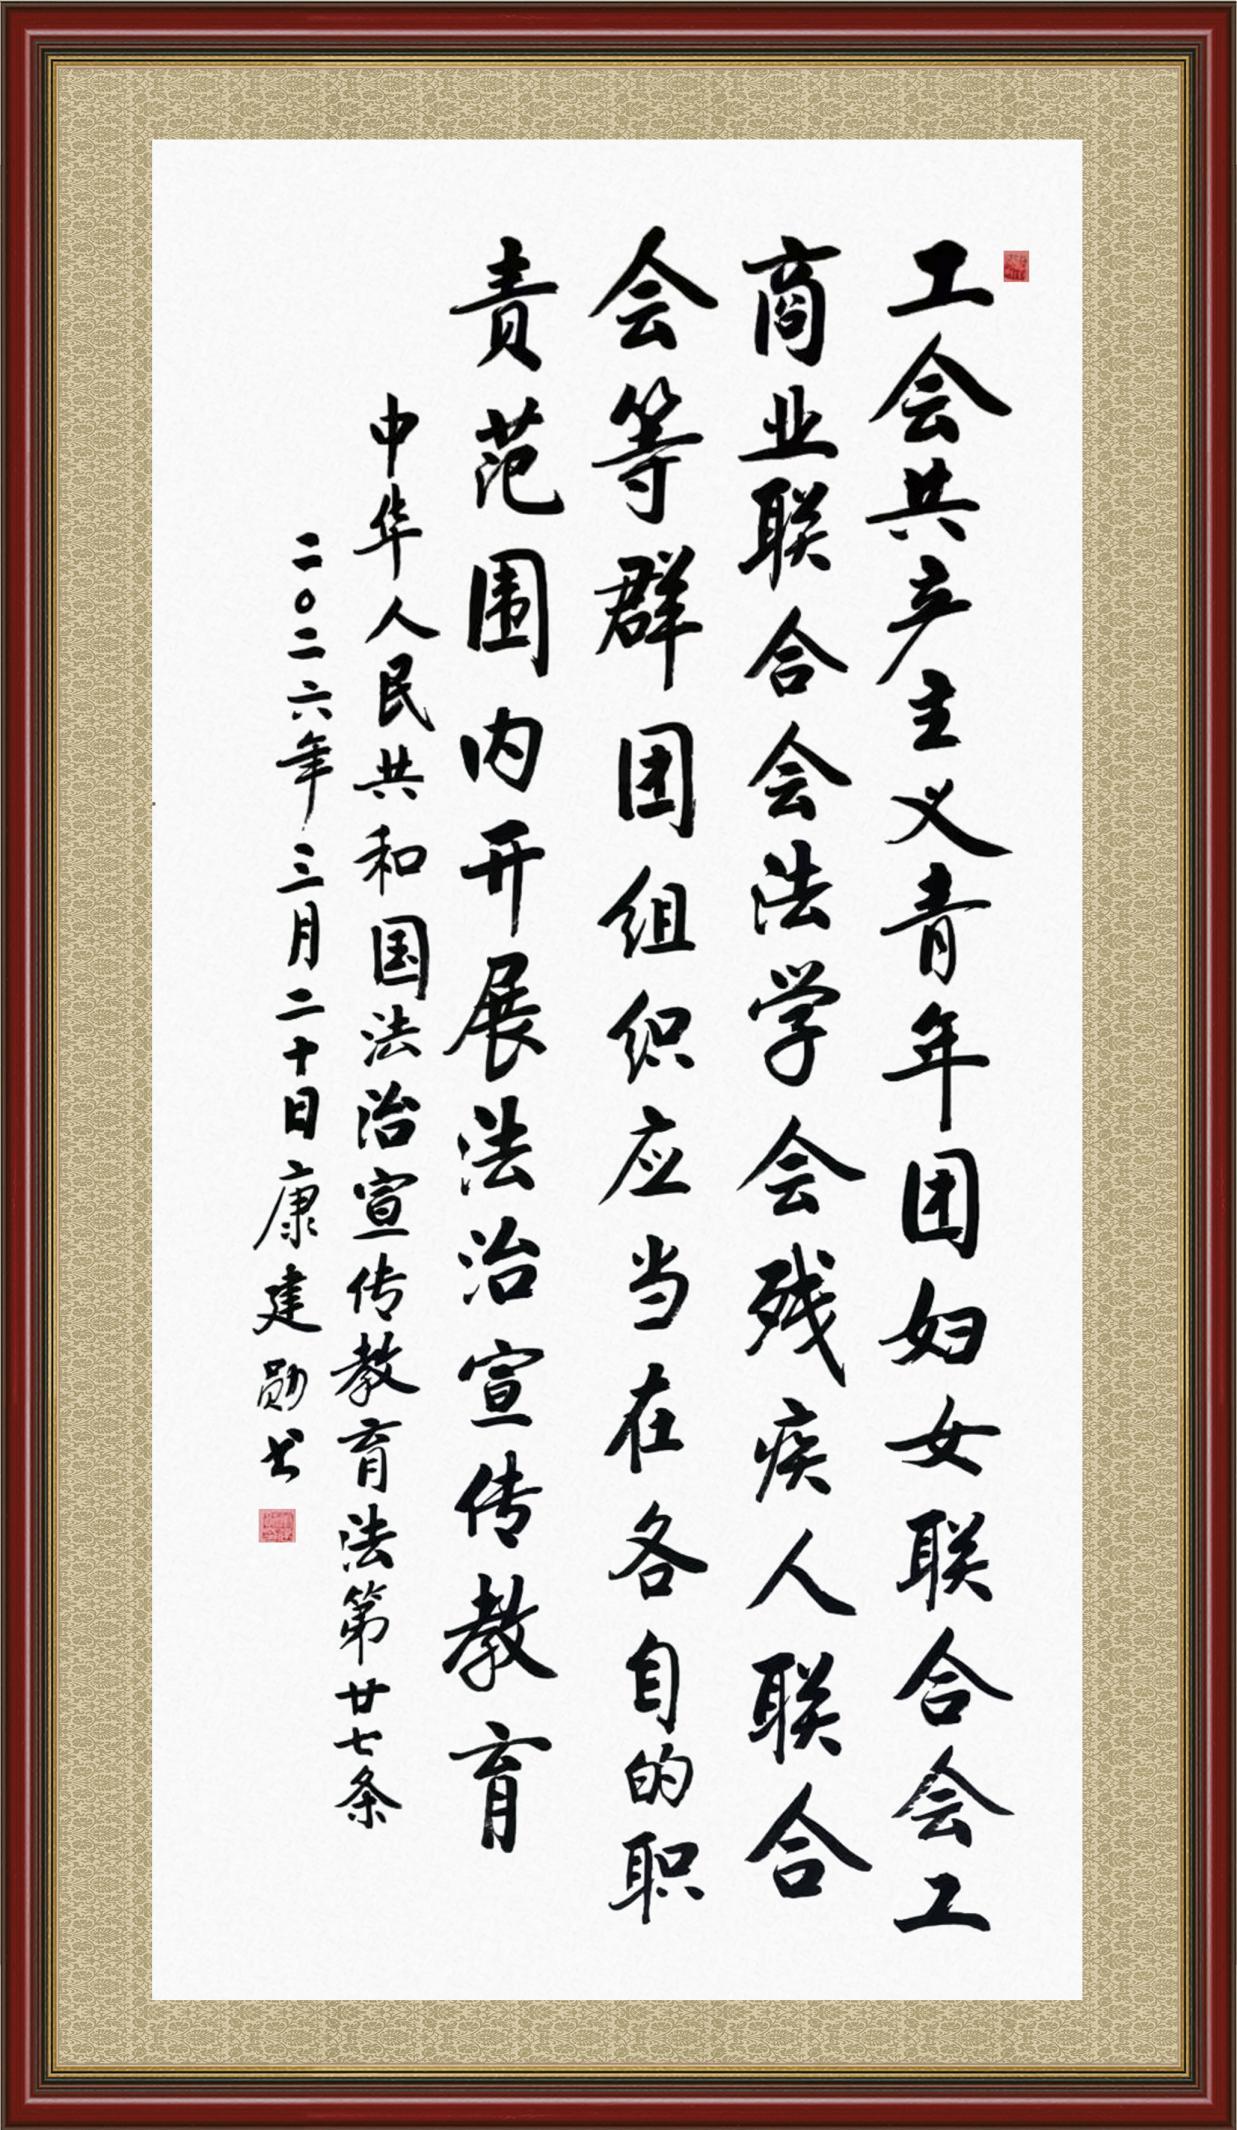 工会共产主义青年团妇女联合会工
商业联合会法学会残疾人联合
会等群团组织应当在各自的职
责范围内开展法治宣传教育
中华人民共和国法治宣传教育法第廿七条
二〇二六年三月二十日康建勋书